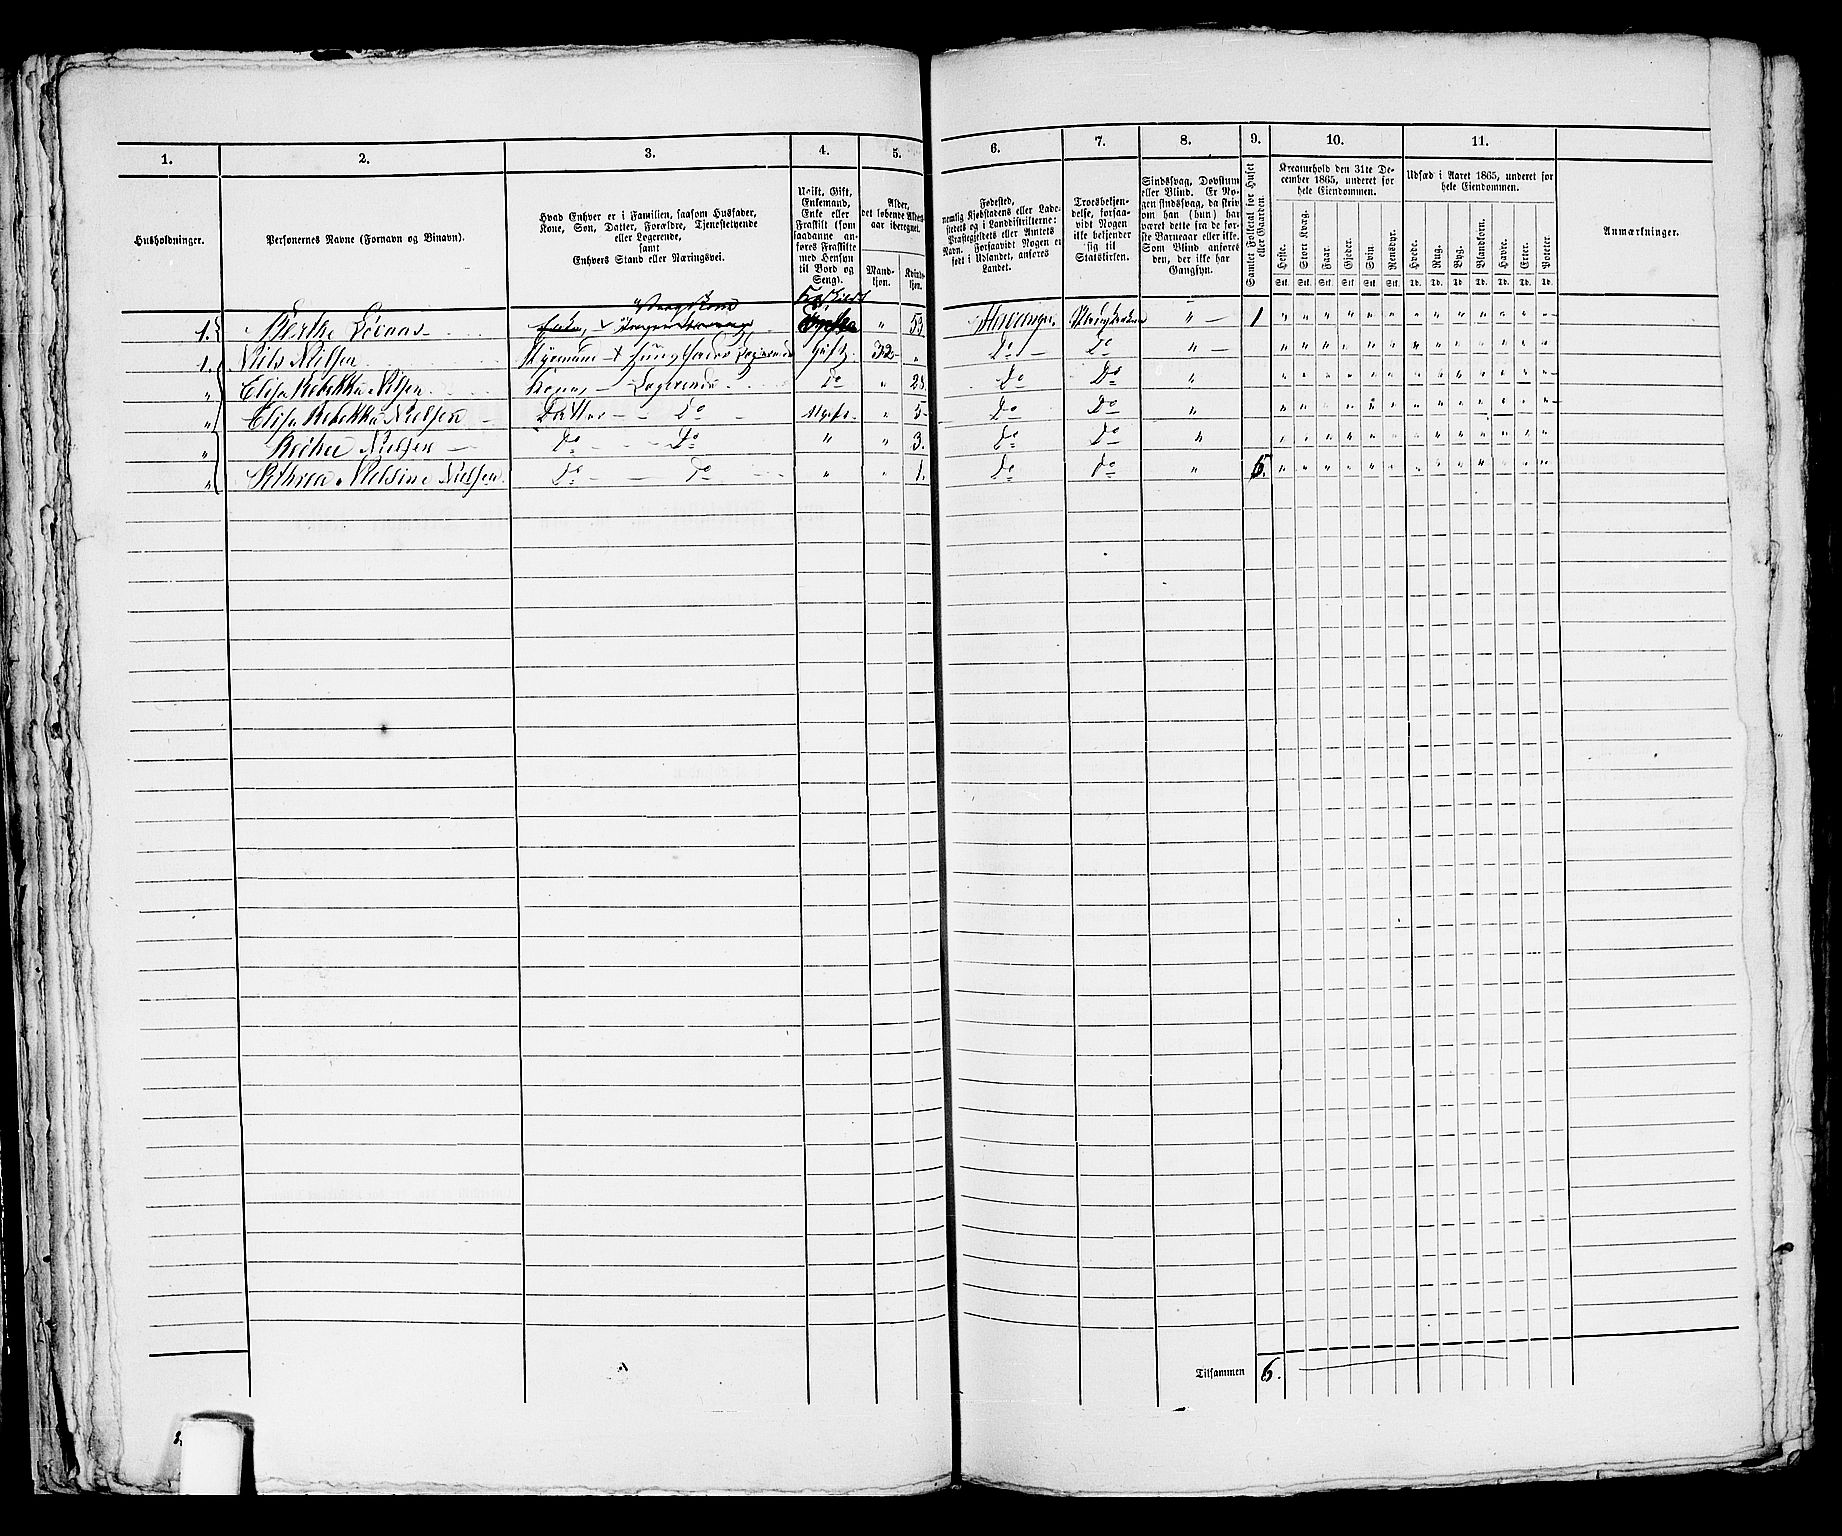 1.
2.
3.
4.
5.
6.
7.
8.
9.
10.
11.
Husholdninger.
Personernes Navne (Fornavn og Binavn).
Hvad Enhver er i Familien, saasom Husfader,
Kone, Søn, Datter, Forældre, Tjenestetyende
eller Logerende,
samt
Enhvers Stand eller Næringsvei.
Ugift, Gift,
Enkemand,
Enke eller
Fraskilt (som
saadanne an-
føres Fraskilte
med Hensyn
til Bord og
Seng).
Alder,
det løbende Alders-
aar iberegnet.
Mand-
kjøn.
Kvinde-
kjøn.
Fødested,
nemlig Kjøbstadens eller Lade-
stedets og i Landdistrikterne:
Præstegjeldets eller Amtets
Navn. Forsaavidt Nogen er
født i Udlandet, anføres
Landet.
Troesbekjen-
delse, forsaa-
vidt Nogen
ikke bekjender
sig til
Statskirken.
Sindssvag, Døvstum
eller Blind. Er No-
gen sindssvag, da skriv
om han (hun) har
været dette fra de før-
ste Barneaar eller ikke.
Som Blind anføres
den, der ikke har
Gangsyn.
Samlet Folketal for Huset
eller Gaarden.
Kreaturhold den 31te De-
cember 1865, underet for
hele Eiendommen.
Heste.
Stort Kvæg.
Faar.
Gjeder.
Svin
Rensdyr.
Stk. Stk. Stk. Stk. Stk. Stk.
Udsæd i Aaret 1865, underet for
hele Eiendommen.
Hvede.
Rug.
Byg.
Blandkorn.
Havre.
Erter.
Poteter
Td. Td. Td. Td. Td. Td. Td.
Anmærkninger.
1. Berthe " 53 " 1 " " " " " " " " " " " " "
1. Nils Nilsen Logerende Gift 32 " Do Do " " " " " " " " " " " " " "
" Elisa Rebekka Nilsen Kone, Logerende Do " 28 Do Do " " " " " " " " " " " " " "
" Elisa Rebekka Nielsen Datter Do Ugift " 5 Do Do " " " " " " " " " " " " " "
" Nielsen Do Do " " 3. Do Do " " " " " " " " " " " " " "
" Nielsen Do Do " " 1. Do Do " 5. " " " " " " " " " " " " "
Tilsammen 6.